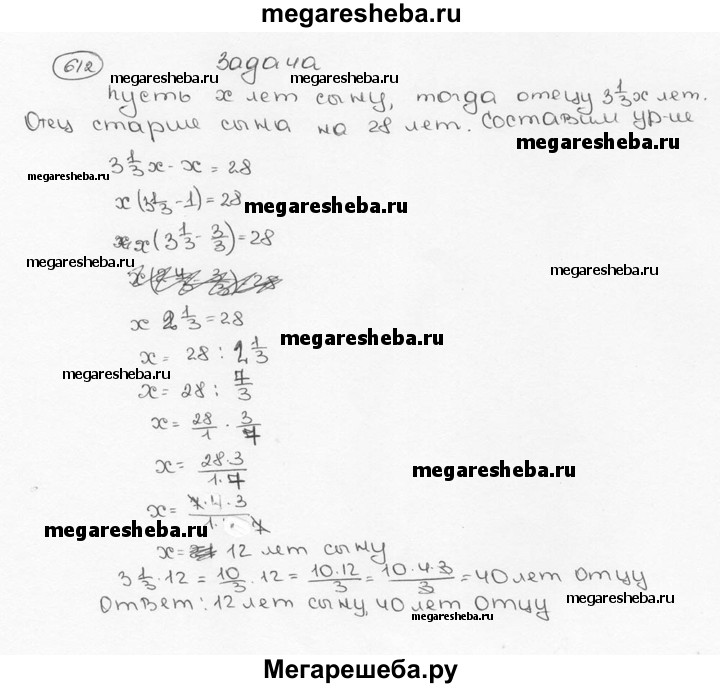 megaresheba.ru
612 Задача
megaresheba.ru megaresheba.ru
Пусть x лет сыну, тогда отцу 3 1/3 x лет.
Отец старше сына на 28 лет. Составим ур-ие
megaresheba.ru
3 1/3 x - x = 28
megaresheba.ru
x (3 1/3 - 1) = 28
megaresheba.ru
x (3 1/3 - 3/3) = 28
megaresheba.ru
megaresheba.ru
x 2 1/3 = 28
megaresheba.ru
x = 28 : 2 1/3
megaresheba.ru
x = 28 : 7/3
x = 28/1 · 3/7
x = 28·3/1·7
megaresheba.ru
x = 7·4·3/1·7
megaresheba.ru
x = 12 лет сыну
3 1/3 · 12 = 10/3 · 12 = 10·12/3 = 10·4·3/3 = 40 лет отцу
megaresheba.ru
Ответ: 12 лет сыну, 40 лет отцу
megaresheba.ru
Мегарешеба.ру